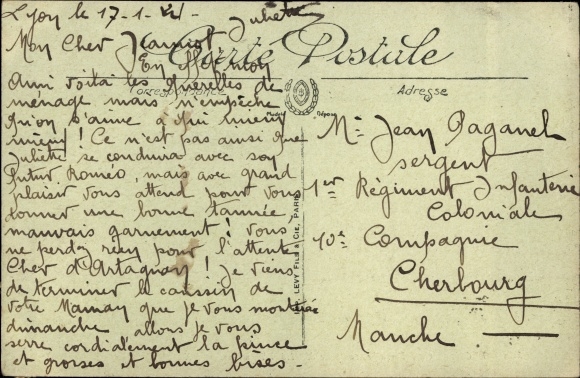 Lyon le 17-1-24
Juliette
Mon Cher Jeannot
Carte Postale
Correspondance
Adresse
Modèle Déposé
Ainsi voilà les querelles de
ménage mais n'empêche
qu'on s'aime
! Ce n'est pas ainsi que
Juliette se conduira avec son
futur Roméo, mais avec grand
plaisir vous attend pour vous
donner une bonne tannée,
mauvais garnement ! Vous
ne perdez rien pour l'attente
Cher d'Artagnan ! Je viens
de terminer le coussin de
votre Maman que je vous montrerai
dimanche allors je vous
serre cordialement la pince
et grosses et bonnes bises -
LEVY FILS & CIE, PARIS
Mr Jean Paganel
sergent
1er Régiment Infanterie
Coloniale
10e Compagnie
Cherbourg
Manche